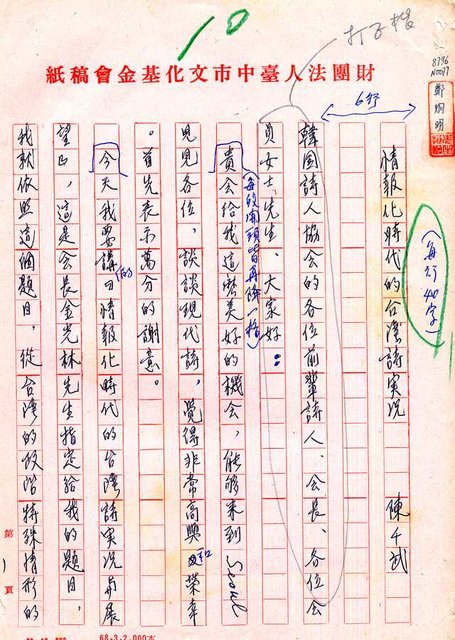 10
財團法人臺中市文化基金會稿紙
鄭烱明
6行
(每行40字)
情報化時代的台灣詩実況　陳千武
韓国詩人協会的各位前輩詩人、会長、各位会
員女士、先生、大家好：
(每段開頭皆再降一格)
貴会给我這麽美好的機会，能够来到 Seoul
見見各位，談談現代詩，覺得非常高興和榮幸
。首先表示萬分的謝意。
今天我要講的「情報化時代的台灣詩実況与展
望」，這是会長金光林先生指定给我的題目，
我就依照這個題目，從台灣的政治特殊情形的
第1頁
68-3-2,000本